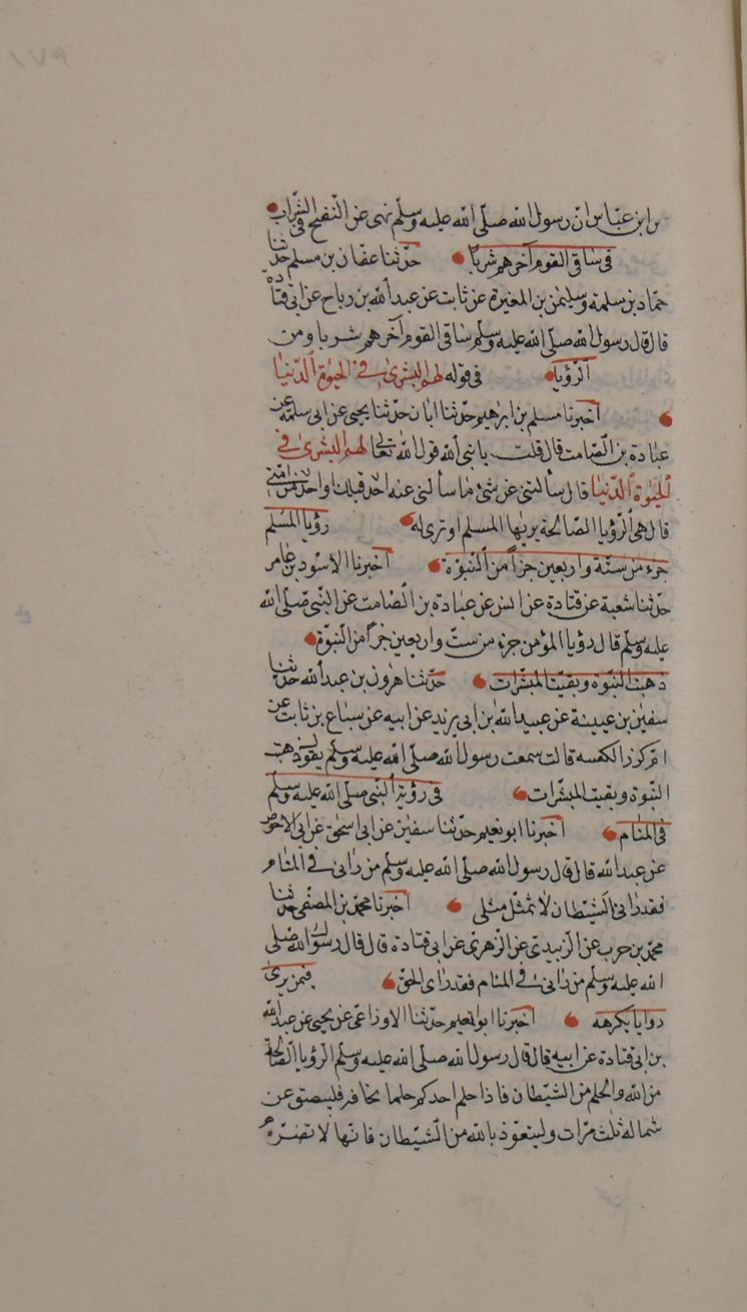 بن ابن عبّاس انّ رسول الله صلّى الله عليه وسلّم نهى عن النّفخ فى الشّراب
فى ساقى القوم آخرهم شربًا حدّثنا عفّان بن مسلم حدّثنا
حمّاد بن سلمة وسليمٰن بن المغيرة عن ثابت عن عبد الله بن رباح عن ابى قتادة
قال قال رسول الله صلّى الله عليه وسلّم ساقى القوم آخرهم شربا ومن
الرّؤيا فى قوله لهم البشرىٰ فى الحيٰوة الدّنيا
أخبرنا مسلم بن ابرٰهيم حدّثنا ابان حدّثنا يحيى عن ابى سلمة عن
عبادة بن الصّامت قال قلت يا نبى الله قول الله تعالى لهم البشرىٰ فى
الحيٰوة الدّنيا قال سألتنى عن شئ ما سألنى عنه احد قبلك او احد من امّتى
قال هى الرّؤيا الصّالحة يريٰها المسلم او ترى له رؤيا المسلم
جزء من ستّة واربعين جزأ من النّبوّة أخبرنا الاسود بن عامر
حدّثنا شعبة عن قتادة عن انس عن عبادة بن الصّامت عن النّبى صلّى الله
عليه وسلّم قال رؤيا المؤمن جزء من ستّ واربعين جزأ من النّبوّة
ذهبت النّبوّة وبقيت المبشّرات حدّثنا هٰرون بن عبد الله حدّثنا
سفيٰن بن عيينة عن عبيد الله بن ابى يزيد عن ابيه عن سباع بن ثابت عن
امّ كرز الكعبيه قالت سمعت رسول الله صلّى الله عليه وسلّم يقول ذهبت
النّبوّة وبقيت المبشّرات فى رؤية النّبى صلّى الله عليه وسلّم
فى المنام أخبرنا ابو نعيم حدّثنا سفيٰن عن ابى اسحٰق عن ابى الاحوص
عن عبد الله قال قال رسول الله صلّى الله عليه وسلّم من رانى فى المنام
فقد رانى الشّيطان لا يتمثّل مثلى أخبرنا محمّد بن المصفّى حدّثنا
محمّد بن حرب عن الزّبيدى عن الزّهرى عن ابى قتادة قال قال رسول الله صلى
الله عليه وسلّم من رانى فى المنام فقد راى الحقّ فيمن يرىٰ
رؤيا يكرهه أخبرنا ابو المغيرة حدّثنا الاوزاعى عن يحيى عن عبد الله
بن ابى قتادة عن ابيه قال قال رسول الله صلى الله عليه وسلّم الرّؤيا الصّالحة
من الله والحلم من الشّيطان فاذا حلم احدكم حلما يخافه فليبصق عن
شماله ثلٰث مرّات وليتعوّذ بالله من الشّيطان فانّها لا تضرّه